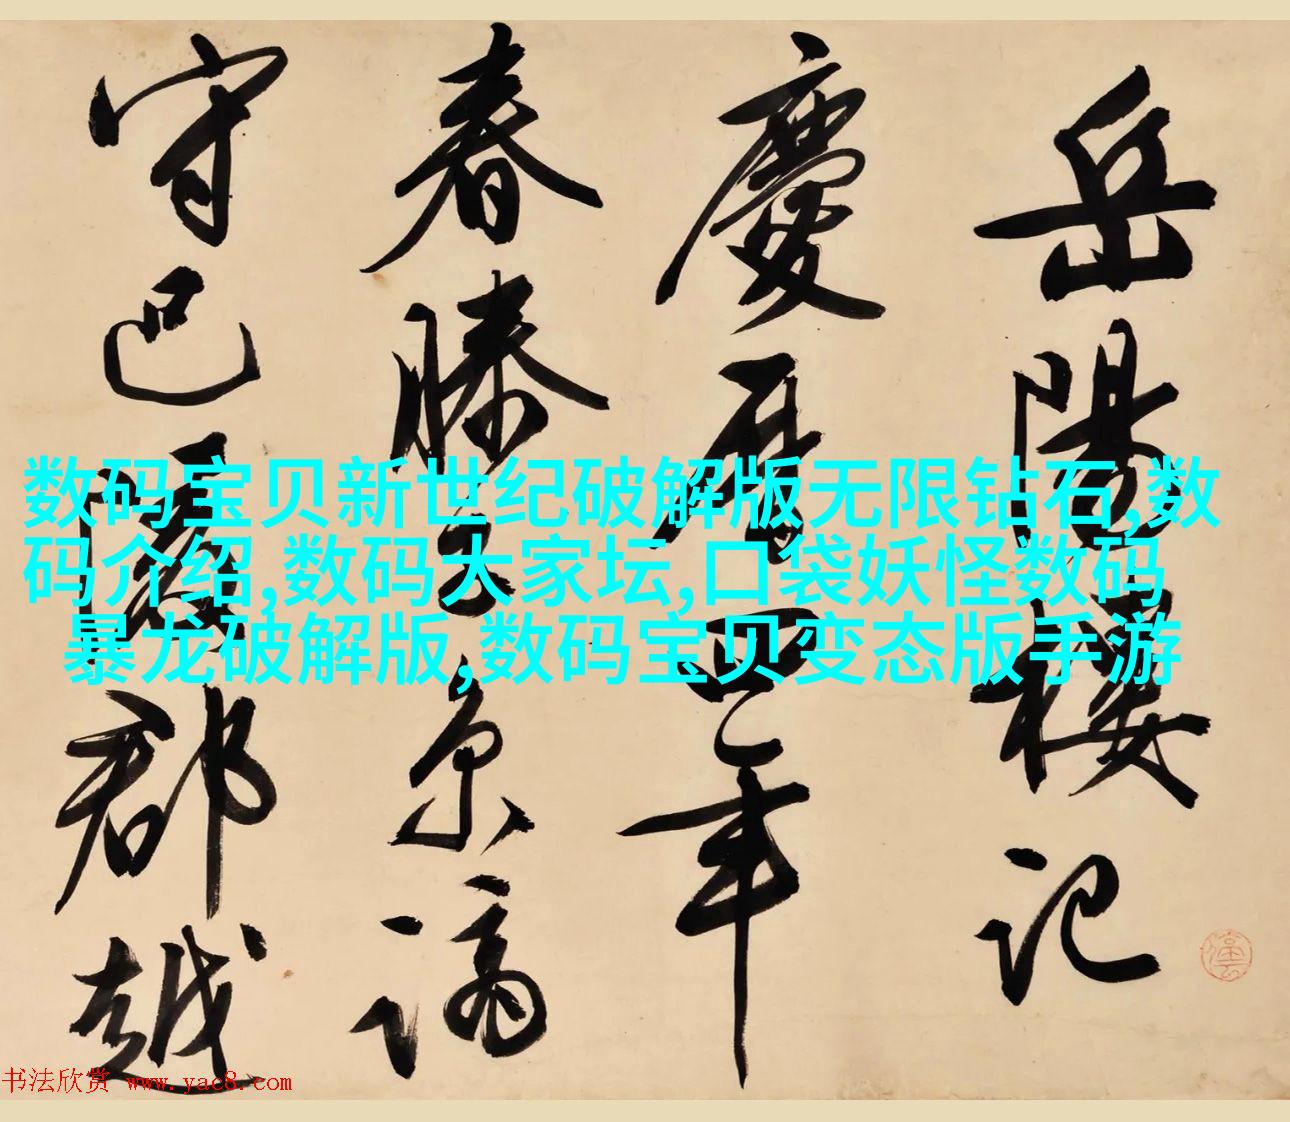 岳陽樓記
慶曆四年
春滕子京謫
守巴陵郡越
数码宝贝新世纪破解版无限钻石,数
码介绍,数码大家坛,口袋妖怪数码
暴龙破解版,数码宝贝变态版手游
书法欣赏 www.yac8.com